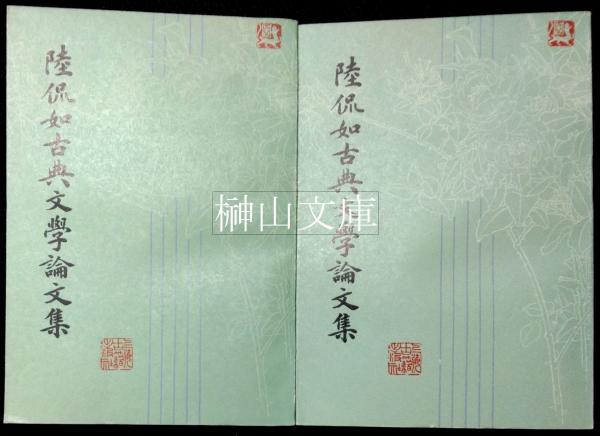 陸侃如古典文學論文集
陸侃如古典文學論文集
榊山文庫